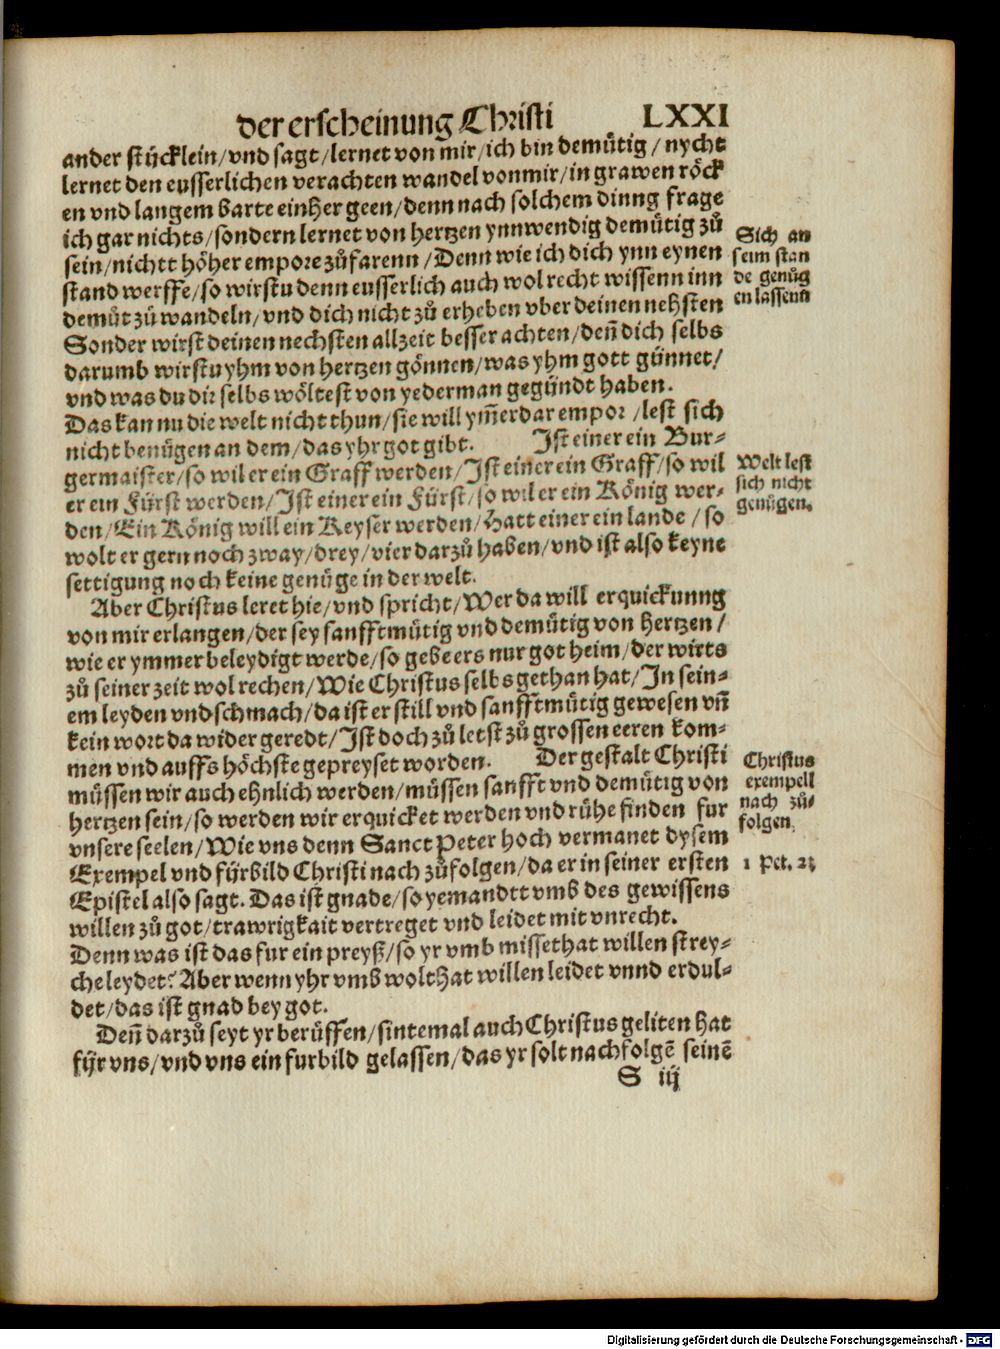 der erscheinung Christi LXXI
ander stücklein/vnd sagt/lernet von mir/ich bin demütig/nycht
lernet den eusserlichen verachten wandel vonmir/in grawen röck
en vnd langem barte einher geen/denn nach solchem dinng frage
ich gar nichts/sondern lernet von hertzen ynnwendig demütig zů
sein/nichtt höher empore zůfarenn/Denn wie ich dich ynn eynen
stand werffe/so wirstu denn eusserlich auch wol recht wissenn inn
demůt zů wandeln/vnd dich nicht zů erheben vber deinen nehsten
Sonder wirst deinen nechsten allzeit besser achten/den̄ dich selbs
darumb wirstu yhm von hertzen gönnen/was yhm gott günnet/
vnd was du dir selbs wöltest von yederman gegündt haben.
Das kan nu die welt nicht thun/sie will ym̄erdar empor/lest sich
nicht benügen an dem/das yhr got gibt. Ist einer ein Bur-
germaister/so wil er ein Graff werden/Ist einer ein Graff/so wil
er ein Fürst werden/Ist einer ein Fürst/so wil er ein König wer-
den/Ein König will ein Keyser werden/Hatt einer ein lande/so
wolt er gern noch zway/drey/vier darzů haben/vnd ist also keyne
settigung noch keine genüge in der welt.
Aber Christus leret hie/vnd spricht/Wer da will erquickunng
von mir erlangen/der sey sanfftmütig vnd demütig von hertzen/
wie er ymmer beleydigt werde/so gebe ers nur got heim/der wirts
zů seiner zeit wol rechen/Wie Christus selbs gethan hat/In sein-
em leyden vnd schmach/da ist er still vnd sanfftmütig gewesen vn̄
kein wort da wider geredt/Ist doch zů letst zů grossen eeren kom-
men vnd auffs höchste gepreyset worden. Der gestalt Christi
müssen wir auch ehnlich werden/müssen sanfft vnd demütig von
hertzen sein/so werden wir erquicket werden vnd rühe finden fur
vnsere seelen/Wie vns denn Sanct Peter hoch vermanet dysem
Exempel vnd fürbild Christi nach zůfolgen/da er in seiner ersten
Epistel also sagt. Das ist gnade/so yemandtt vmb des gewissens
willen zů got/trawrigkait vertreget vnd leidet mit vnrecht.
Denn was ist das fur ein preyß/so yr vmb missethat willen strey-
che leydet? Aber wenn yhr vmb wolthat willen leidet vnnd erdul-
det/das ist gnad bey got.
Den̄ darzů seyt yr berüffen/sintemal auch Christus geliten hat
für vns/vnd vns ein furbild gelassen/das yr solt nachfolgē seinē
S iij
Sich an
seim stan
de genüg
en lassenn
Welt lest
sich nicht
genügen.
Christus
exempell
nach zů-
folgen.
1 Pet. 2;
Digitalisierung gefördert durch die Deutsche Forschungsgemeinschaft - DFG